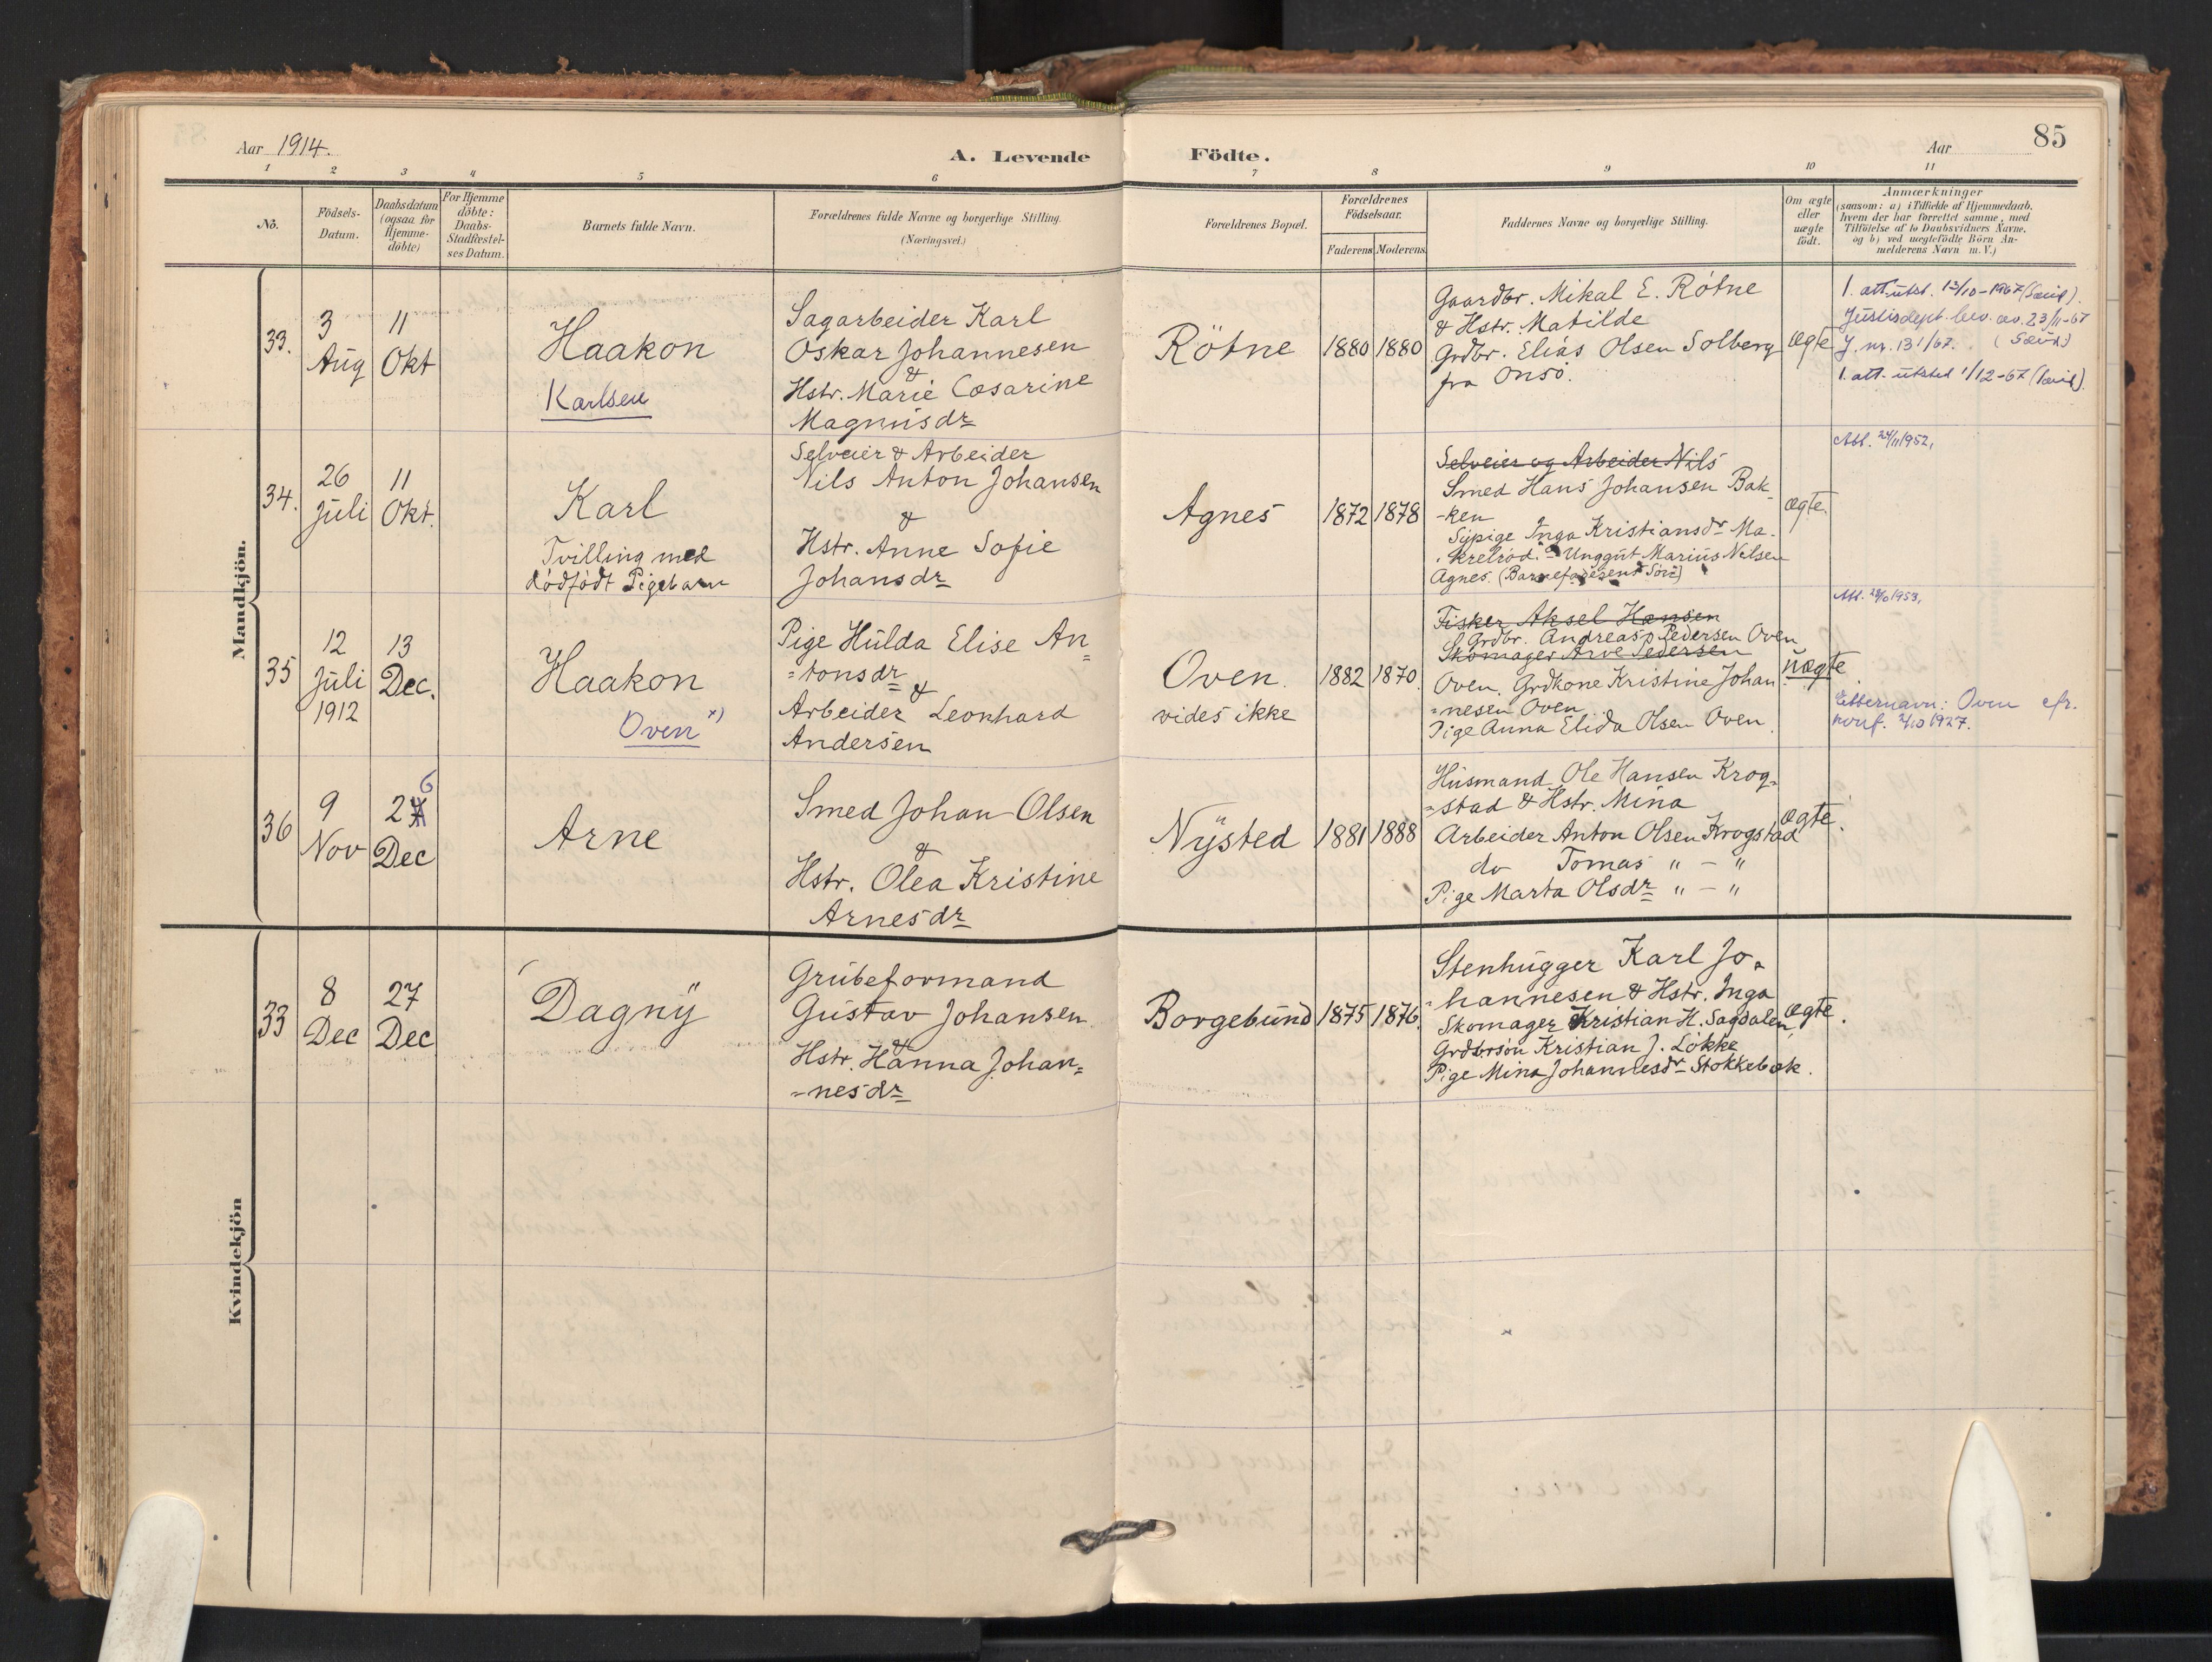 Aar 1914.
A. Levende Födte.
Aar
85
1 2 3 4 5 6 7 8 9 10 11
No.
Födsels-
Datum.
Daabsdatum
(ogsaa for
Hjemme-
döbte)
For Hjemme
döbte:
Daabs-
Stadfæstel-
ses Datum.
Barnets fulde Navn.
Forældrenes fulde Navne og borgerlige Stilling.
(Næringsvei.)
Forældrenes Bopæl.
Forældrenes
Födselsaar.
Faderens
Moderens
Faddernes Navne og borgerlige Stilling.
Om ægte
eller
uægte
födt.
Anmærkninger
(saasom: a) i Tilfælde af Hjemmedaab.
hvem der har forrettet samme, med
Tilföielse af to Daabsvidners Navne.
og b) ved uægtefödte Börn An-
melderens Navn m. V.)
Mandkjön.
33.
3
Aug
11
Okt
Haakon
Karlsen
Sagarbeider Karl
Oskar Johannesen
&
Hstr. Marie Cæsarine
Magnusdr
Rötne
1880
1880
Gaardbr. Mikal E. Rötne
& Hstr. Matilde
Grdbr. Elias Olsen Solberg
fra Onsö.
ægte
1. att. utst. 13/10-1967
Justisdept. bev. av. 23/11-67
J. nr. 131/67.
1. att. utsted 1/12-67
34.
26
Juli
11
Okt.
Karl
Tvilling med
dödfödt Pigebarn
Selveier & Arbeider
Nils Anton Johansen
&
Hstr. Anne Sofie
Johansdr
Agnes
1872
1878
Selveier og Arbeider Nils
Smed Hans Johansen Bak-
-ken
Sypige Inga Kristiansdr Ma-
krelröd. Unggut Marius Nilsen
Agnes.
ægte.
Att. 24/11 1952.
35
12
Juli
1912
13
Dec.
Haakon
Oven x)
Pige Hulda Elise An
=tonsdr
&
Arbeider Leonhard
Andersen
Oven.
vides ikke
1882
1870
Fisker Aksel Hansen
Grdbr. Andreas Pedersen Oven
Skomager Arve Pedersen
Oven. Grdkone Kristine Johan
=nesen Oven
Pige Anna Elida Olsen Oven.
uægte
1953.
Etternavn: Oven cfr.
1927.
36
9
Nov
27 6
Dec
Arne
Smed Johan Olsen
&
Hstr. Olea Kristine
Arnesdr
Nysted
1881
1888
Husmand Ole Hansen Krog=
=stad & Hstr. Mina
Arbeider Anton Olsen Krogstad
do Tomas " - "
Pige Marta Olsdr " - "
ægte.
Kvindekjön
33
8
Dec
27
Dec
Dagny
Grubeformand
Gustav Johansen
&
Hstr. Hanna Johan=
=nesdr
Borgebund
1875
1876
Stenhugger Karl Jo=
hannesen & Hstr. Inga
Skomager Kristian H. Sagdalen
Grdbrsön Kristian J. Lökke
Pige Mina Johannesdr Stokkebæk.
ægte.